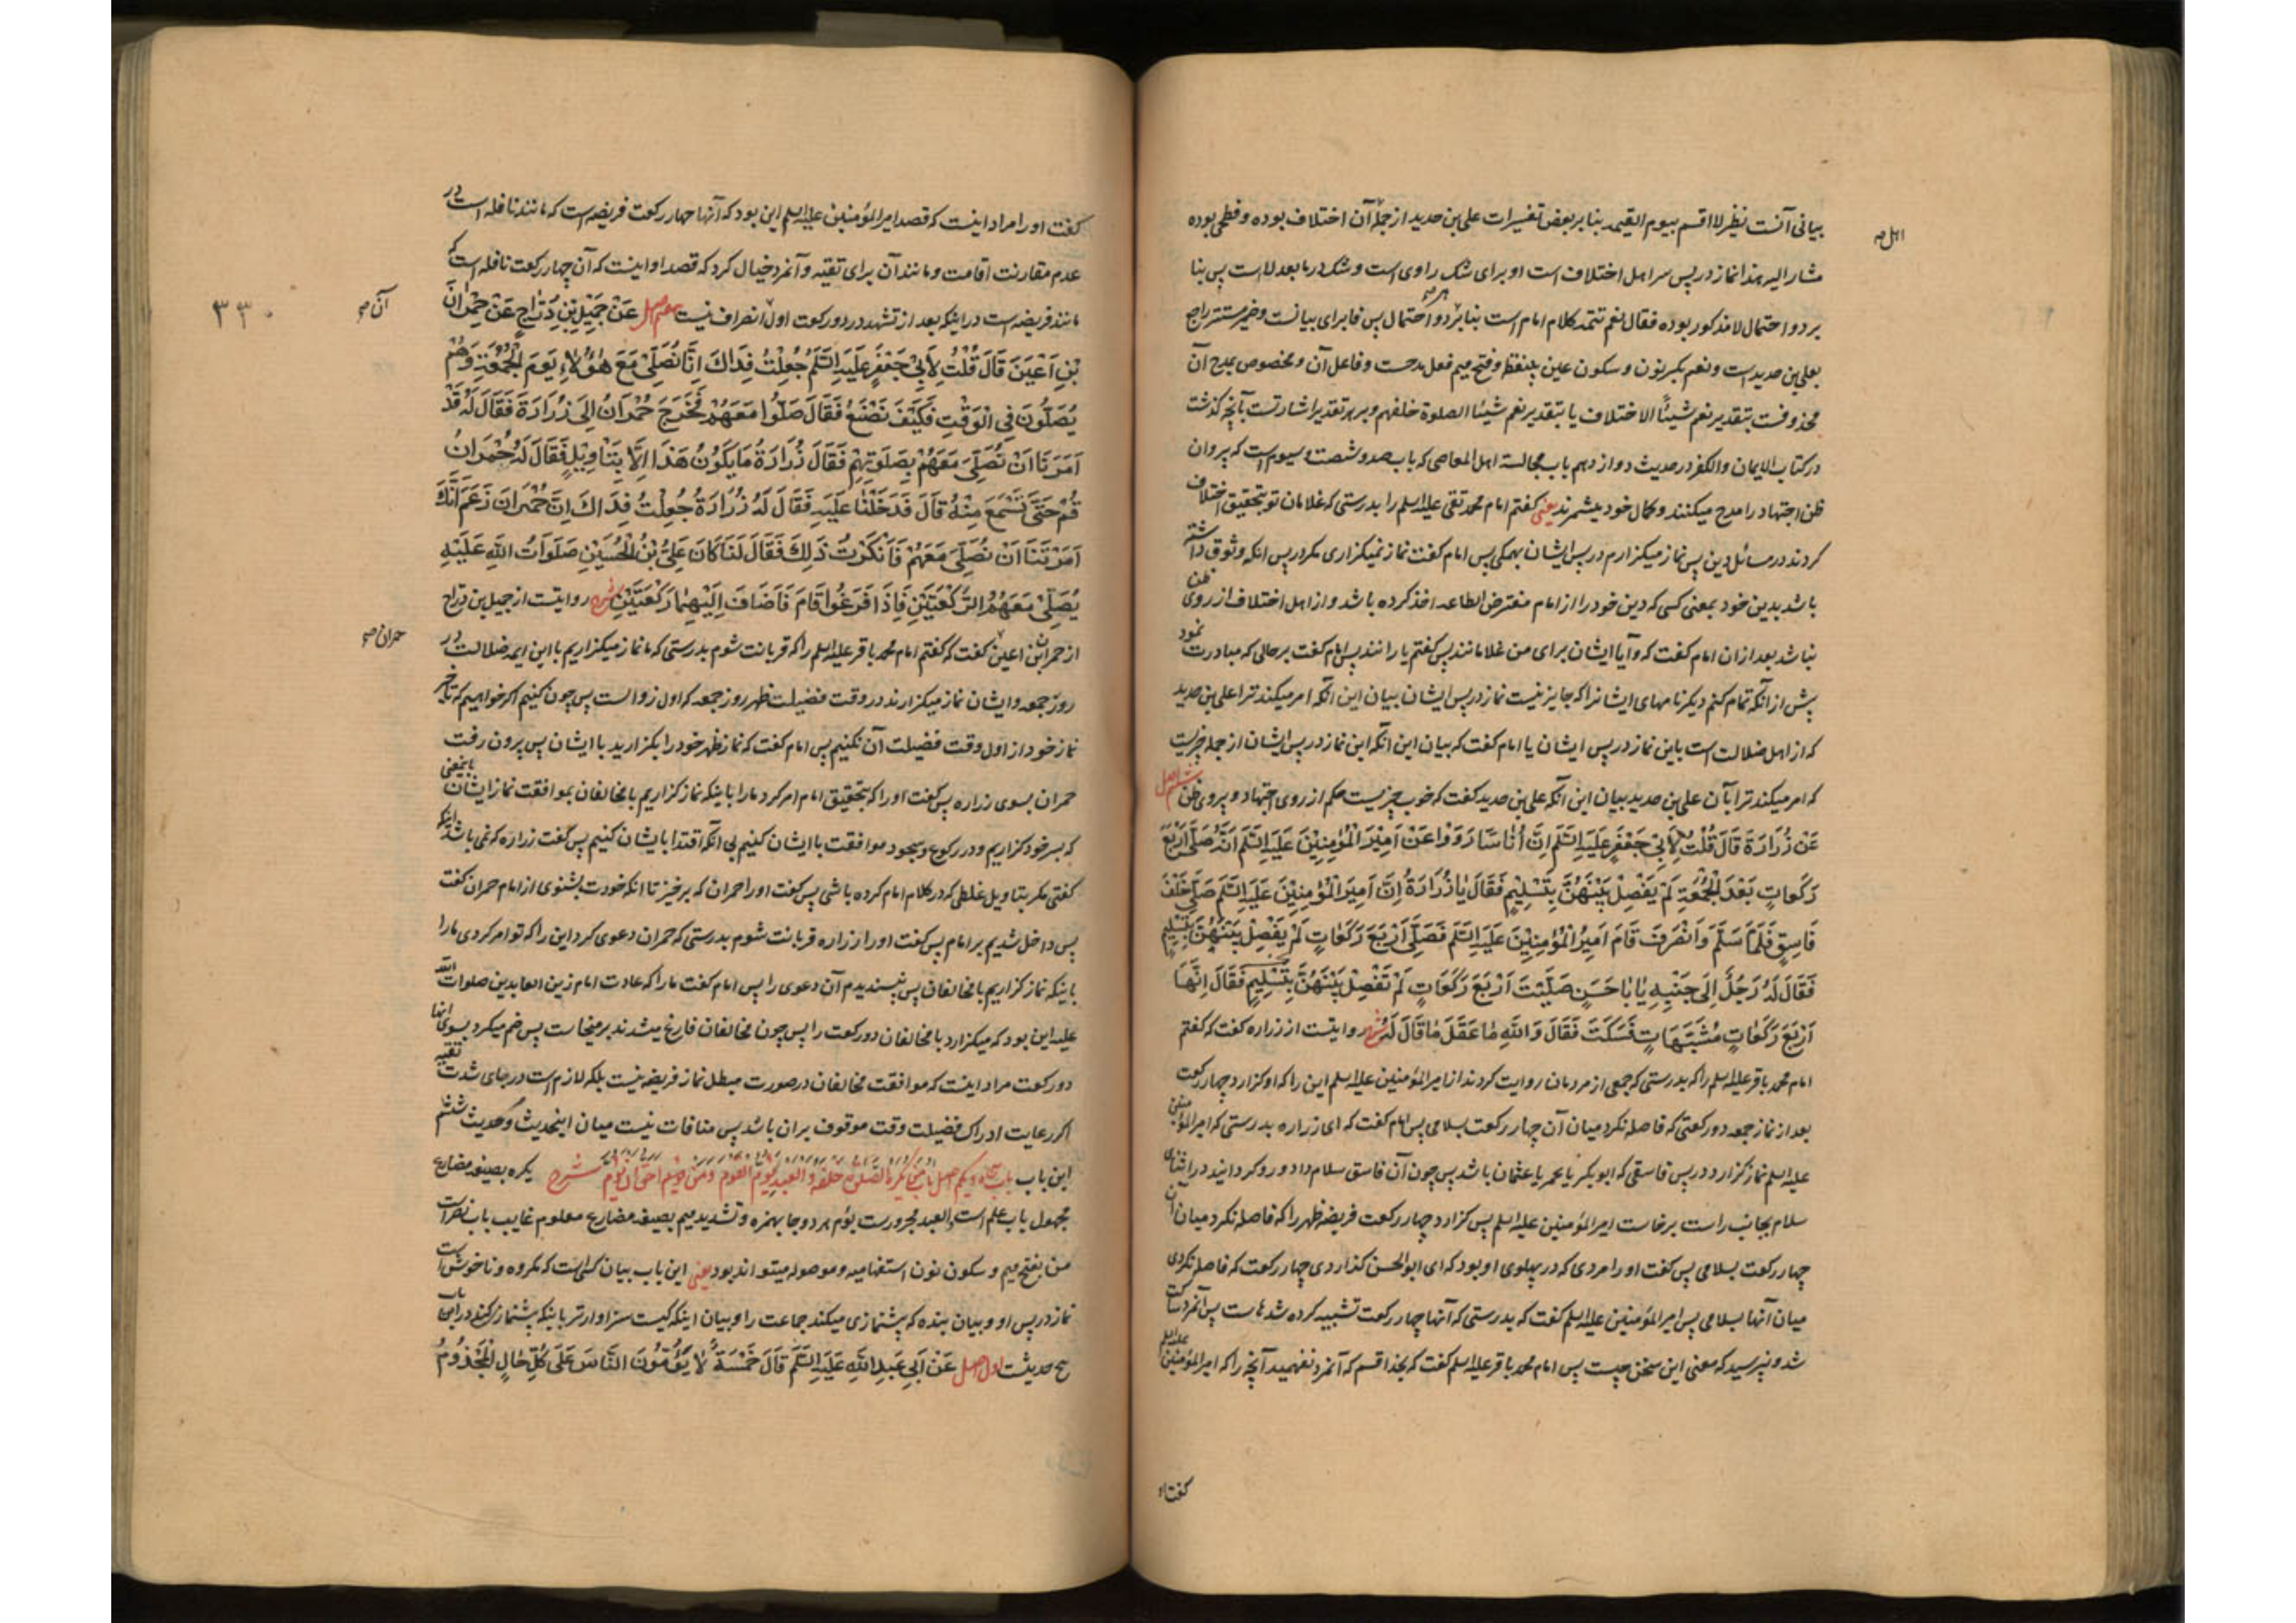 بیانی آنت نظیر لا اقسم بیوم القیمه بنا بر بعض تفسیرات علی بن حدید از جمله آن اختلاف بوده و فطحی بوده
اهل صه
مشار الیه هذا نماز در پس سر اهل اختلاف است او برای شک راوی است و شک در ما بعد لا است پس بنا
بر دو احتمال لا مذکور بوده فقال نعم تتمه کلام امام است بنا بر دو احتمال پس فا برای بیانست و ضمیر مستتر راجع
بعلی بن حدید است و نعم بکسر نون و سکون عین بینقطه و فتح میم فعل مدحست و فاعل آن و مخصوص بمدح آن
محذوفست بتقدیر نعم شیئًا الاختلاف یا بتقدیر نعم شیئا الصلوة خلفهم و بر هر تقدیر اشارتست بآنچه گذشت
در کتاب الایمان والکفر در حدیث دوازدهم باب مجالسة اهل المعاصی که باب صد و شصت و سیوم است که پیروان
ظن اجتهاد را مدح میکنند و کمال خود میشمرند یعنی گفتم امام محمد تقی علیه السلم را بدرستی که غلامان تو بتحقیق اختلاف
کردند در مسائل دین پس نماز میگزارم در پس ایشان بهمگی پس امام گفت نماز نمیگزاری مگر در پس آنکه وثوق داشته
باشد بدین خود بمعنی کسی که دین خود را از امام مفترض الطاعه اخذ کرده باشد و از اهل اختلاف از روی ظن
نباشد بعد ازان امام گفت که و آیا ایشان برای من غلامانند پس گفتم یا رانند پس امام گفت بر حالی که مبادرت نمود
پیش از آنکه تمام کنم دیگر نامهای ایشانرا که جایز نیست نماز در پس ایشان بیان این آنکه امر میکند ترا علی بن حدید
که از اهل ضلالت است باین نماز در پس ایشان یا امام گفت که بیان این آنکه این نماز در پس ایشان از جمله چیزیست
که امر میکند ترا بآن علی بن حدید بیان این آنکه علی بن حدید گفت که خوب چیزیست حکم از روی اجتهاد و پیروی ظن ششم اصل
عَنْ زُرَارَةَ قَالَ قُلْتُ لِأَبِي جَعْفَرٍ عَلَيْهِ السَّلَمُ اِنَّ أُنَاسًا رَوَوْا عَنْ اَمِيْرِ الْمُؤْمِنِيْنَ عَلَيْهِ السَّلَمُ اَنَّهُ صَلَّى اَرْبَعَ
رَكَعَاتٍ بَعْدَ الْجُمُعَةِ لَمْ يَفْصِلْ بَيْنَهُنَّ بِتَسْلِيْمٍ فَقَالَ يَا زُرَارَةُ اِنَّ اَمِيْرَ الْمُؤْمِنِيْنَ عَلَيْهِ السَّلَمُ صَلَّى خَلْفَ
فَاسِقٍ فَلَمَّا سَلَّمَ وَانْصَرَفَ قَامَ اَمِيْرُ الْمُؤْمِنِيْنَ عَلَيْهِ السَّلَمُ فَصَلَّى اَرْبَعَ رَكَعَاتٍ لَمْ يَفْصِلْ بَيْنَهُنَّ بِتَسْلِيْمٍ
فَقَالَ لَهُ رَجُلٌ اِلَى جَنْبِهِ يَا بَا حَسَنٍ صَلَّيْتَ اَرْبَعَ رَكَعَاتٍ لَمْ تَفْصِلْ بَيْنَهُنَّ بِتَسْلِيْمٍ فَقَالَ اِنَّهَا
اَرْبَعُ رَكَعَاتٍ مُشَبَّهَاتٍ فَسَكَتَ فَقَالَ وَاللّٰهِ مَا عَقَلَ مَا قَالَ لَهُ شرح روایتست از زراره گفت که گفتم
امام محمد باقر علیه السلم را که بدرستی که جمعی از مردمان روایت کردند از امیر المؤمنین علیه السلم این را که او گزارد چهار رکعت
بعد از نماز جمعه دو رکعتی که فاصله نکرد میان آن چهار رکعت بسلامی پس امام گفت که ای زراره بدرستی که امیر المؤمنین
علیه السلم نماز گزارد در پس فاسقی که ابوبکر یا عمر یا عثمان باشد پس چون آن فاسق سلام داد و رو گردانید در اثنای
سلام بجانب راست برخاست امیر المؤمنین علیه السلم پس گزارد چهار رکعت فریضه ظهر را که فاصله نکرد میان آن
چهار رکعت بسلامی پس گفت او را مردی که در پهلوی او بود که ای ابوالحسن گذاردی چهار رکعت که فاصله نکردی
میان آنها بسلامی پس امیر المؤمنین علیه السلم گفت که بدرستی که آنها چهار رکعت تشبیه کرده شده است پس آنمرد ساکت
شد و نپرسید که معنی این سخن چیست پس امام محمد باقر علیه السلم گفت که بخدا قسم که آنمرد نفهمید آنچه را که امیر المؤمنین علیه السلم
گفت او
گفت او را مراد اینست که قصد امیر المؤمنین علیه السلم این بود که آنها چهار رکعت فریضه است که مانند نافله است در
عدم مقارنت اقامت و مانند آن برای تقیه و آنمرد خیال کرد که قصد او اینست که آن چهار رکعت نافله است که
مانند فریضه است در اینکه بعد از تشهد در دو رکعت اول انصراف نیست هفتم اصل عَنْ جَمِيْلِ بْنِ دَرَّاجٍ عَنْ حُمْرَانَ
آن صه
۳۳۰
بْنِ اَعْيَنَ قَالَ قُلْتُ لِأَبِي جَعْفَرٍ عَلَيْهِ السَّلَمُ جُعِلْتُ فِدَاكَ اِنَّا نُصَلِّيْ مَعَ هٰؤُلَاءِ يَوْمَ الْجُمُعَةِ وَهُمْ
يُصَلُّوْنَ فِي الْوَقْتِ فَكَيْفَ نَصْنَعُ فَقَالَ صَلُّوا مَعَهُمْ فَخَرَجَ حُمْرَانُ اِلَى زُرَارَةَ فَقَالَ لَهُ قَدْ
اَمَرَنَا اَنْ نُصَلِّيَ مَعَهُمْ بِصَلَوتِهِمْ فَقَالَ زُرَارَةُ مَا يَكُوْنُ هَذَا اِلَّا بِتَاْوِيْلٍ فَقَالَ لَهُ حُمْرَانُ
قُمْ حَتَّى نَسْمَعَ مِنْهُ قَالَ فَدَخَلْنَا عَلَيْهِ فَقَالَ لَهُ زُرَارَةُ جُعِلْتُ فِدَاكَ اِنَّ حُمْرَانَ زَعَمَ اَنَّكَ
اَمَرْتَنَا اَنْ نُصَلِّيَ مَعَهُمْ فَاَنْكَرْتُ ذَلِكَ فَقَالَ لَنَا كَانَ عَلِيُّ بْنُ الْحُسَيْنِ صَلَوَاتُ اللّٰهِ عَلَيْهِ
يُصَلِّيْ مَعَهُمُ الرَّكْعَتَيْنِ فَاِذَا فَرَغُوْا قَامَ فَاَضَافَ اِلَيْهِمَا رَكْعَتَيْنِ شرح روایتست از جمیل بن دراج
از حمران بن اعین گفت که گفتم امام محمد باقر علیه السلم را که قربانت شوم بدرستی که ما نماز میگزاریم با این ایمه ضلالت در
حمران صه
روز جمعه و ایشان نماز میگزارند در وقت فضیلت ظهر روز جمعه که اول زوالست پس چون کنیم اگر خواهیم که تاخیر
نماز خود از اول وقت فضیلت آن نکنیم پس امام گفت که نماز ظهر خود را بگزارید با ایشان پس بیرون رفت
حمران بسوی زراره پس گفت او را که بتحقیق امام امر کرد ما را باینکه نماز گزاریم با مخالفان بموافقت نماز ایشان باینمعنی
که بسر خود گزاریم و در رکوع و سجود موافقت با ایشان کنیم بی آنکه اقتدا بایشان کنیم پس گفت زراره که نمی باشد اینکه
گفتی مگر بتاویل غلطی که در کلام امام کرده باشی پس گفت او را حمران که برخیز تا آنکه خودت بشنوی از امام حمران گفت
پس داخل شدیم بر امام پس گفت او را زراره قربانت شوم بدرستی که حمران دعوی کرد این را که تو امر کردی ما را
باینکه نماز گزاریم با مخالفان پس نپسندیدم آن دعوی را پس امام گفت ما را که عادت امام زین العابدین صلوات الله
علیه این بود که میگزارد با مخالفان دو رکعت را پس چون مخالفان فارغ میشدند برمیخاست پس ضم میکرد بسوی آنها
دو رکعت مراد اینست که موافقت مخالفان در صورت مبطل نماز فریضه نیست بلکه لازم است در جای شدت تقیه
اگر رعایت ادراک فضیلت وقت موقوف بران باشد پس منافات نیست میان اینحدیث و حدیث ششم
این باب باب پنجاه و یکم اصل باب من تکره الصلوة خلفه والعبد یؤم القوم ومن احق ان یؤم شرح یکره بصیغه مضارع
مجهول باب علم است والعبد مجرورست یؤم هر دو جا بهمزه و تشدید میم بصیغه مضارع معلوم غایب باب نصر است
من بفتح میم و سکون نون استفهامیه و موصوله میتواند بود یعنی این باب بیان کسی است که مکروه و ناخوش است
نماز در پس او و بیان بنده که پیشنمازی میکند جماعت را و بیان اینکه کیست سزاوارتر باینکه پیشنماز کنند در این باب
شش حدیثست اول اصل عَنْ اَبِي عَبْدِ اللّٰهِ عَلَيْهِ السَّلَمُ قَالَ خَمْسَةٌ لَا يَؤُمُّوْنَ النَّاسَ عَلَى كُلِّ حَالٍ الْمَجْذُوْمُ